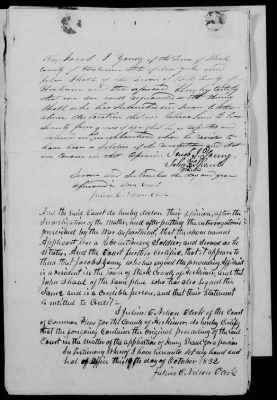 We Jacob I. Young of the Town of Stark
County of Herkimer State of New York and
John Shall of the Town of Stark County of
Herkimer and State aforesaid hereby certify
that we are well acquainted with Henry
Shall who has subscribed and sworn to the
above declaration that we believe him to be
Seventy four years of age that he is reputed and
believed in the neighborhood where he resides to
have been a Soldier of the Revolution and that
we concur in that Opinion. Jacob I. Young
John Shaul
Sworn and Subscribed the day and year
aforesaid in open court
Julius C. Nelson Clerk
And the Said Court do hereby declare their Opinion, after the
investigation of the Matter, and after putting the interrogatories
prescribed by the War department, that the above named
Applicant was a Revolutionary Soldier, and Served as he
States, And the Court further certifies, that it appears to
them that Jacob I. Young who has signed the preceding Affidavit
is a resident in the Town of Stark County of Herkimer, and that
John Shaul of the Same place who has also signed the
Same and is a credible person, and that their Statement
is entitled to Credit
I Julius C. Nelson Clerk of the Court
of Common Pleas for the County of Herkimer, do hereby Certify
that the foregoing Contains the original Proceedings of the said
Court in the Matter of the application of Henry Shaul for a pension
In Testimony Whereof I have hereunto Set my hand and
Seal of Office this 10th day of October 1832
Julius C. Nelson Clerk